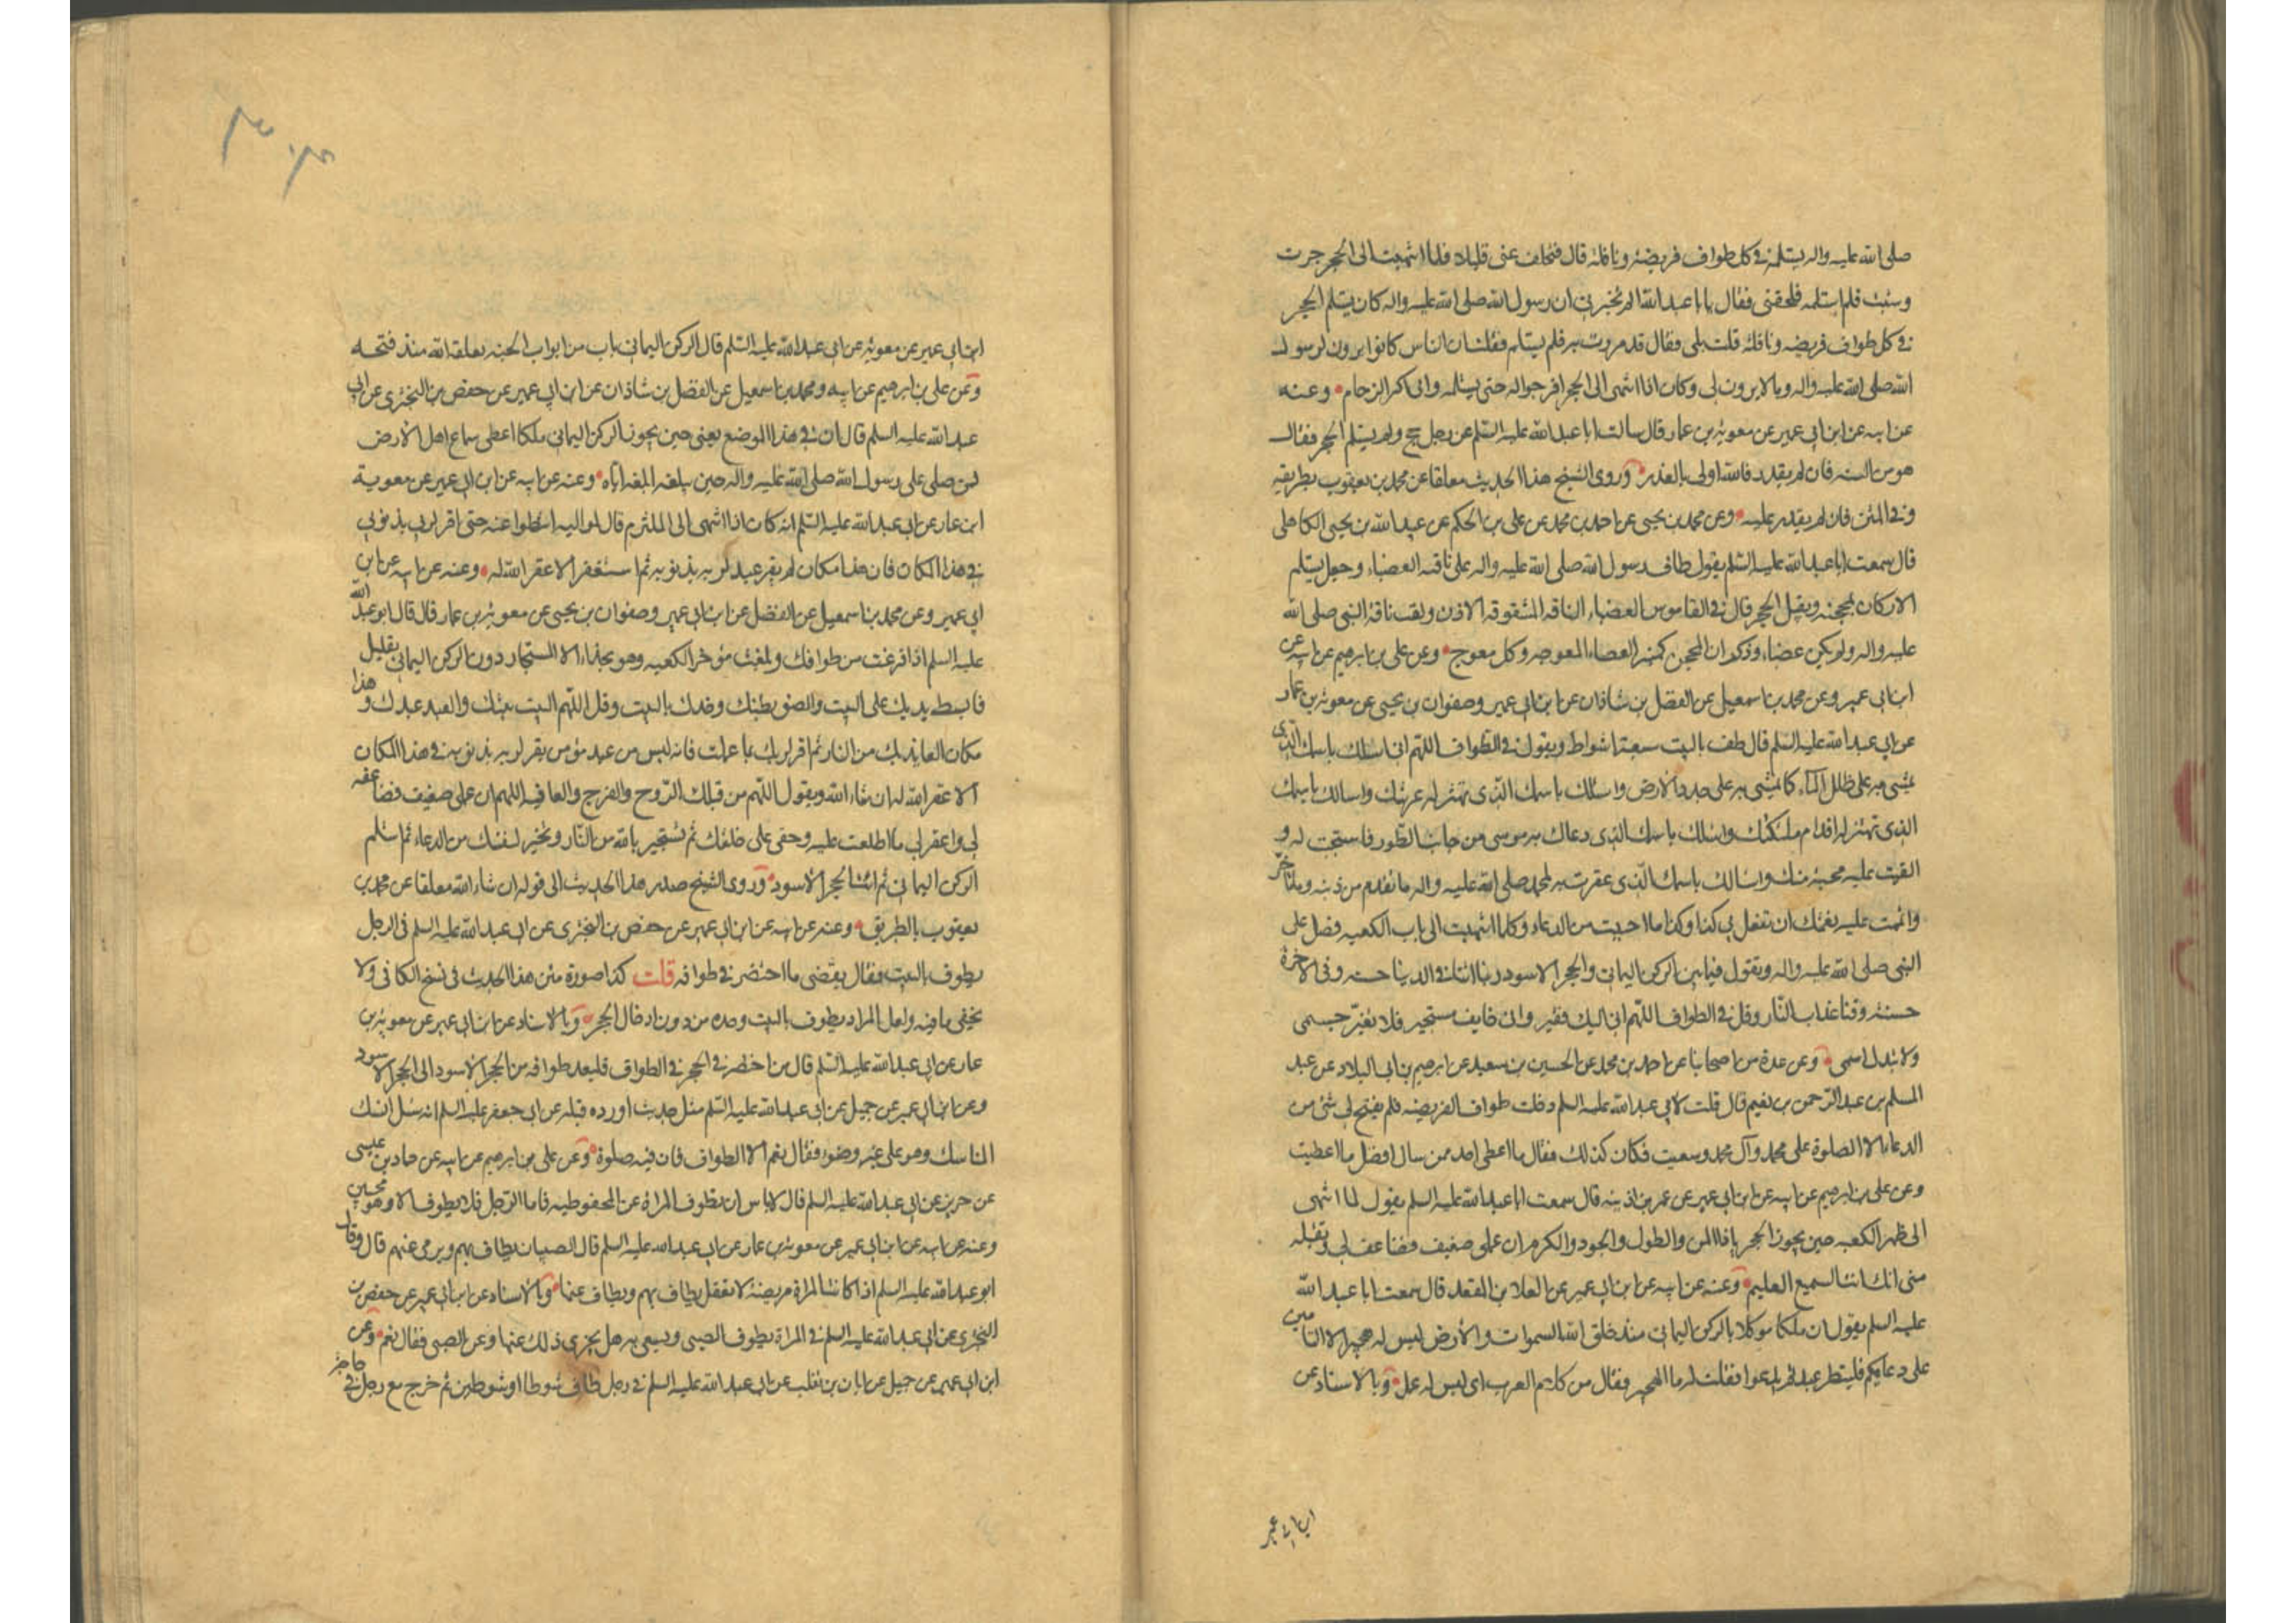 صلى الله عليه واله يستلمه في كل طواف فريضة ونافلة قال فتخلف عني قليلا فلما انتهيت الى الحجر جرت
ومشيت فلم استلمه فلحقني فقال يا ابا عبد الله الم تخبرني ان رسول الله صلى الله عليه واله كان يستلم الحجر
في كل طواف فريضه ونافلة قلت بلى فقال قد مررت به فلم يستلم فقلت ان الناس كانوا يرون لرسول
الله صلى الله عليه واله ما لا يرون لي وكان اذا انتهى الى الحجر افرجوا له حتى يستلمه واني اكره الزحام وعنه
عن ابيه عن ابن ابي عمير عن معوية بن عمار قال سالت ابا عبد الله عليه السلم عن رجل حج ولم يستلم الحجر فقال
هو من السنه فان لم يقدر فالله اولى بالعذر وروى الشيخ هذا الحديث معلقا عن محمد بن يعقوب بطريقه
وفي المتن فان لم يقدر عليه وعن محمد بن يحيى عن احمد بن محمد عن علي بن الحكم عن عبد الله بن يحيى الكاهلي
قال سمعت ابا عبد الله عليه السلم يقول طاف رسول الله صلى الله عليه واله على ناقته العضباء وجعل يستلم
الاركان بمحجنه ويقبل الحجر قال في القاموس العضباء الناقه المشقوقه الاذن ولقب ناقة النبي صلى الله
عليه واله ولم يكن عضباء وذكر ان المحجن كمنبر العصاء المعوجه وكل معوج وعن علي بن ابرهيم عن ابيه عن
ابن ابي عمير وعن محمد بن اسمعيل عن الفضل بن شاذان عن ابن ابي عمير وصفوان بن يحيى عن معوية بن عمار
عن ابي عبد الله عليه السلم قال طف بالبيت سبعة اشواط ويقول في الطواف اللهم اني اسئلك باسمك الذي
يمشى به على طلل الماء كما يمشى به على جدد الارض واسئلك باسمك الذي تهتز له عرشك واسالك باسمك
الذي تهتز له اقدام ملئكتك واسئلك باسمك الذي دعاك به موسى من جانب الطور فاستجبت له و
القيت عليه محبة منك واسالك باسمك الذي غفرت به لمحمد صلى الله عليه واله ما تقدم من ذنبه وما تاخر
واتممت عليه نعمتك ان تفعل بي كذا وكذا ما احببت من الدعاء وكلما انتهيت الى باب الكعبه فصل على
النبي صلى الله عليه واله وتقول فيما بين الركن اليماني والحجر الاسود ربنا اتنا في الدنيا حسنه وفي الاخرة
حسنة وقنا عذاب النار وقل في الطواف اللهم اني اليك فقير واني خايف مستجير فلا تغير جسمي
ولا تبدل اسمي وعن عدة من اصحابنا عن احمد بن محمد عن الحسين بن سعيد عن ابرهيم بن ابي البلاد عن عبد
السلم بن عبد الرحمن بن نعيم قال قلت لابي عبد الله عليه السلم دخلت طواف الفريضه فلم يفتح لي شئ من
الدعاء الا الصلوة على محمد وآل محمد وسعيت فكان كذلك فقال ما اعطى احد ممن سال افضل مما اعطيت
وعن علي بن ابرهيم عن ابيه عن ابن ابي عمير عن عمر بن اذينه قال سمعت ابا عبد الله عليه السلم يقول لما انتهى
الى ظهر الكعبه حين يجوز الحجر يا ذا المن والطول والجود والكرم ان عملي ضعيف فضاعفه لي وتقبله
مني انك انت السميع العليم وعنه عن ابيه عن ابن ابي عمير عن العلا بن المقعد قال سمعت ابا عبد الله
عليه السلم يقول ان ملكا موكلا بالركن اليماني منذ خلق الله السموات والارض ليس له هجير الا التامين
على دعايكم فلينظر عبد بم يدعوا فقلت له ما الهجير فقال من كلام العرب اي ليس له عمل وبالاسناد عن
ابن ابي عمير
ابن ابي عمير عن معوية عن ابي عبد الله عليه السلم قال الركن اليماني باب من ابواب الجنه لم يغلقه الله منذ فتحه
وعن علي بن ابرهيم عن ابيه ومحمد بن اسمعيل عن الفضل بن شاذان عن ابن ابي عمير عن حفص بن البختري عن ابي
عبد الله عليه السلم قال ان في هذا الموضع يعني حين يجوز الركن اليماني ملكا اعطى سماع اهل الارض
فمن صلى على رسول الله صلى الله عليه واله حين يبلغه ابلغه اياه وعنه عن ابيه عن ابن ابي عمير عن معوية
ابن عمار عن ابي عبد الله عليه السلم انه كان اذا انتهى الى الملتزم قال لمواليه اميطوا عني حتى اقر لربي بذنوبي
في هذا المكان فان هذا مكان لم يقر عبد لربه بذنوبه ثم استغفر الا غفر الله له وعنه عن ابيه عن ابن
ابي عمير وعن محمد بن اسمعيل عن الفضل عن ابن ابي عمير وصفوان بن يحيى عن معوية بن عمار قال قال ابو عبد الله
عليه السلم اذا فرغت من طوافك وبلغت مؤخر الكعبه وهو بحذاء المستجار دون الركن اليماني بقليل
فابسط يديك على البيت والصق بطنك وخدك بالبيت وقل اللهم البيت بيتك والعبد عبدك وهذا
مكان العايذ بك من النار ثم اقر لربك بما عملت فانه ليس من عبد مؤمن يقر لربه بذنوبه في هذا المكان
الا غفر الله له ان شاء الله ويقول اللهم من قبلك الروح والفرج والعافيه اللهم ان عملي ضعيف فضاعفه
لي واغفر لي ما اطلعت عليه وخفى على خلقك ثم تستجير بالله من النار وتخير لنفسك من الدعاء ثم استلم
الركن اليماني ثم ائت الحجر الاسود وروى الشيخ صدر هذا الحديث الى قوله ان شاء الله معلقا عن محمد بن
يعقوب بالطريق وعنه عن ابيه عن ابن ابي عمير عن حفص بن البختري عن ابي عبد الله عليه السلم في الرجل
يطوف بالبيت فقال يقضى ما اختصر في طوافه قلت كذا صورة متن هذا الحديث في نسخ الكافي ولا
يخفى ما فيه ولعل المراد يطوف بالبيت وحده من دون ادخال الحجر وبالاسناد عن ابن ابي عمير عن معوية بن
عمار عن ابي عبد الله عليه السلم قال من اختصر في الحجر في الطواف فليعد طوافه من الحجر الاسود الى الحجر الاسود
وعن ابن ابي عمير عن جميل عن ابي عبد الله عليه السلم مثل حديث اورده قبله عن ابي جعفر عليه السلم انه سئل انسك
المناسك وهو على غير وضوء فقال نعم الا الطواف فان فيه صلوة وعن علي بن ابرهيم عن ابيه عن حماد بن عيسى
عن حريز عن ابي عبد الله عليه السلم قال لا باس ان تطوف المراة غير المخفوضه فاما الرجل فلا يطوف الا وهو مختتن
وعنه عن ابيه عن ابن ابي عمير عن معوية بن عمار عن ابي عبد الله عليه السلم قال الصبيان يطاف بهم ويرمى عنهم قال وقال
ابو عبد الله عليه السلم اذا كانت المراة مريضة لا تعقل يطاف بهم ويطاف عنها وبالاسناد عن ابن ابي عمير عن حفص بن
البختري عن ابي عبد الله عليه السلم في المراة يطوف الصبي ويسعى به هل يجزي ذلك عنها وعن الصبي فقال نعم وعن
ابن ابي عمير عن جميل عن ابان بن تغلب عن ابي عبد الله عليه السلم في رجل طاف شوطا او شوطين ثم خرج مع رجل في حاجة